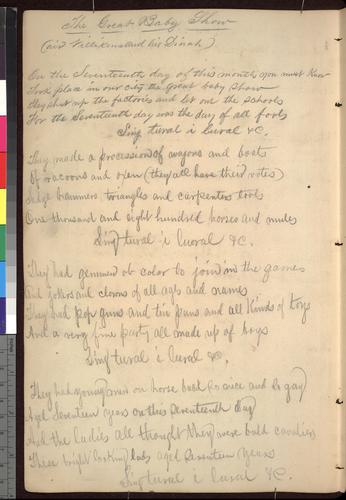 The Great Baby Show
(air Villikens and his Dinah)
On the Seventeenth day of this month you must know
Took place in our city the great baby show
They shut up the factories and let out the schools
For the Seventeenth day was the day of all fools
Sing tural i lural &C.
They made a procession of wagons and boats
Of racoons and oxen (they all have their votes)
Sledge hammers, triangles and carpenters tools
One thousand and eight hundred horses and mules
Sing tural i lural &C.
They had gemmen ob color to join in the games
And jokers and clowns of all ages and names
They had pop guns and tin pans and all kinds of toys
And a very fine party all made up of boys
Sing tural i lural &C.
They had young men on horse back so nice and so gay
Aged Seventeen years on this Seventeenth day
And the ladies all thought they were bold cavaliers
These bright looking lads aged Seventeen years
Sing tural i lural &C.